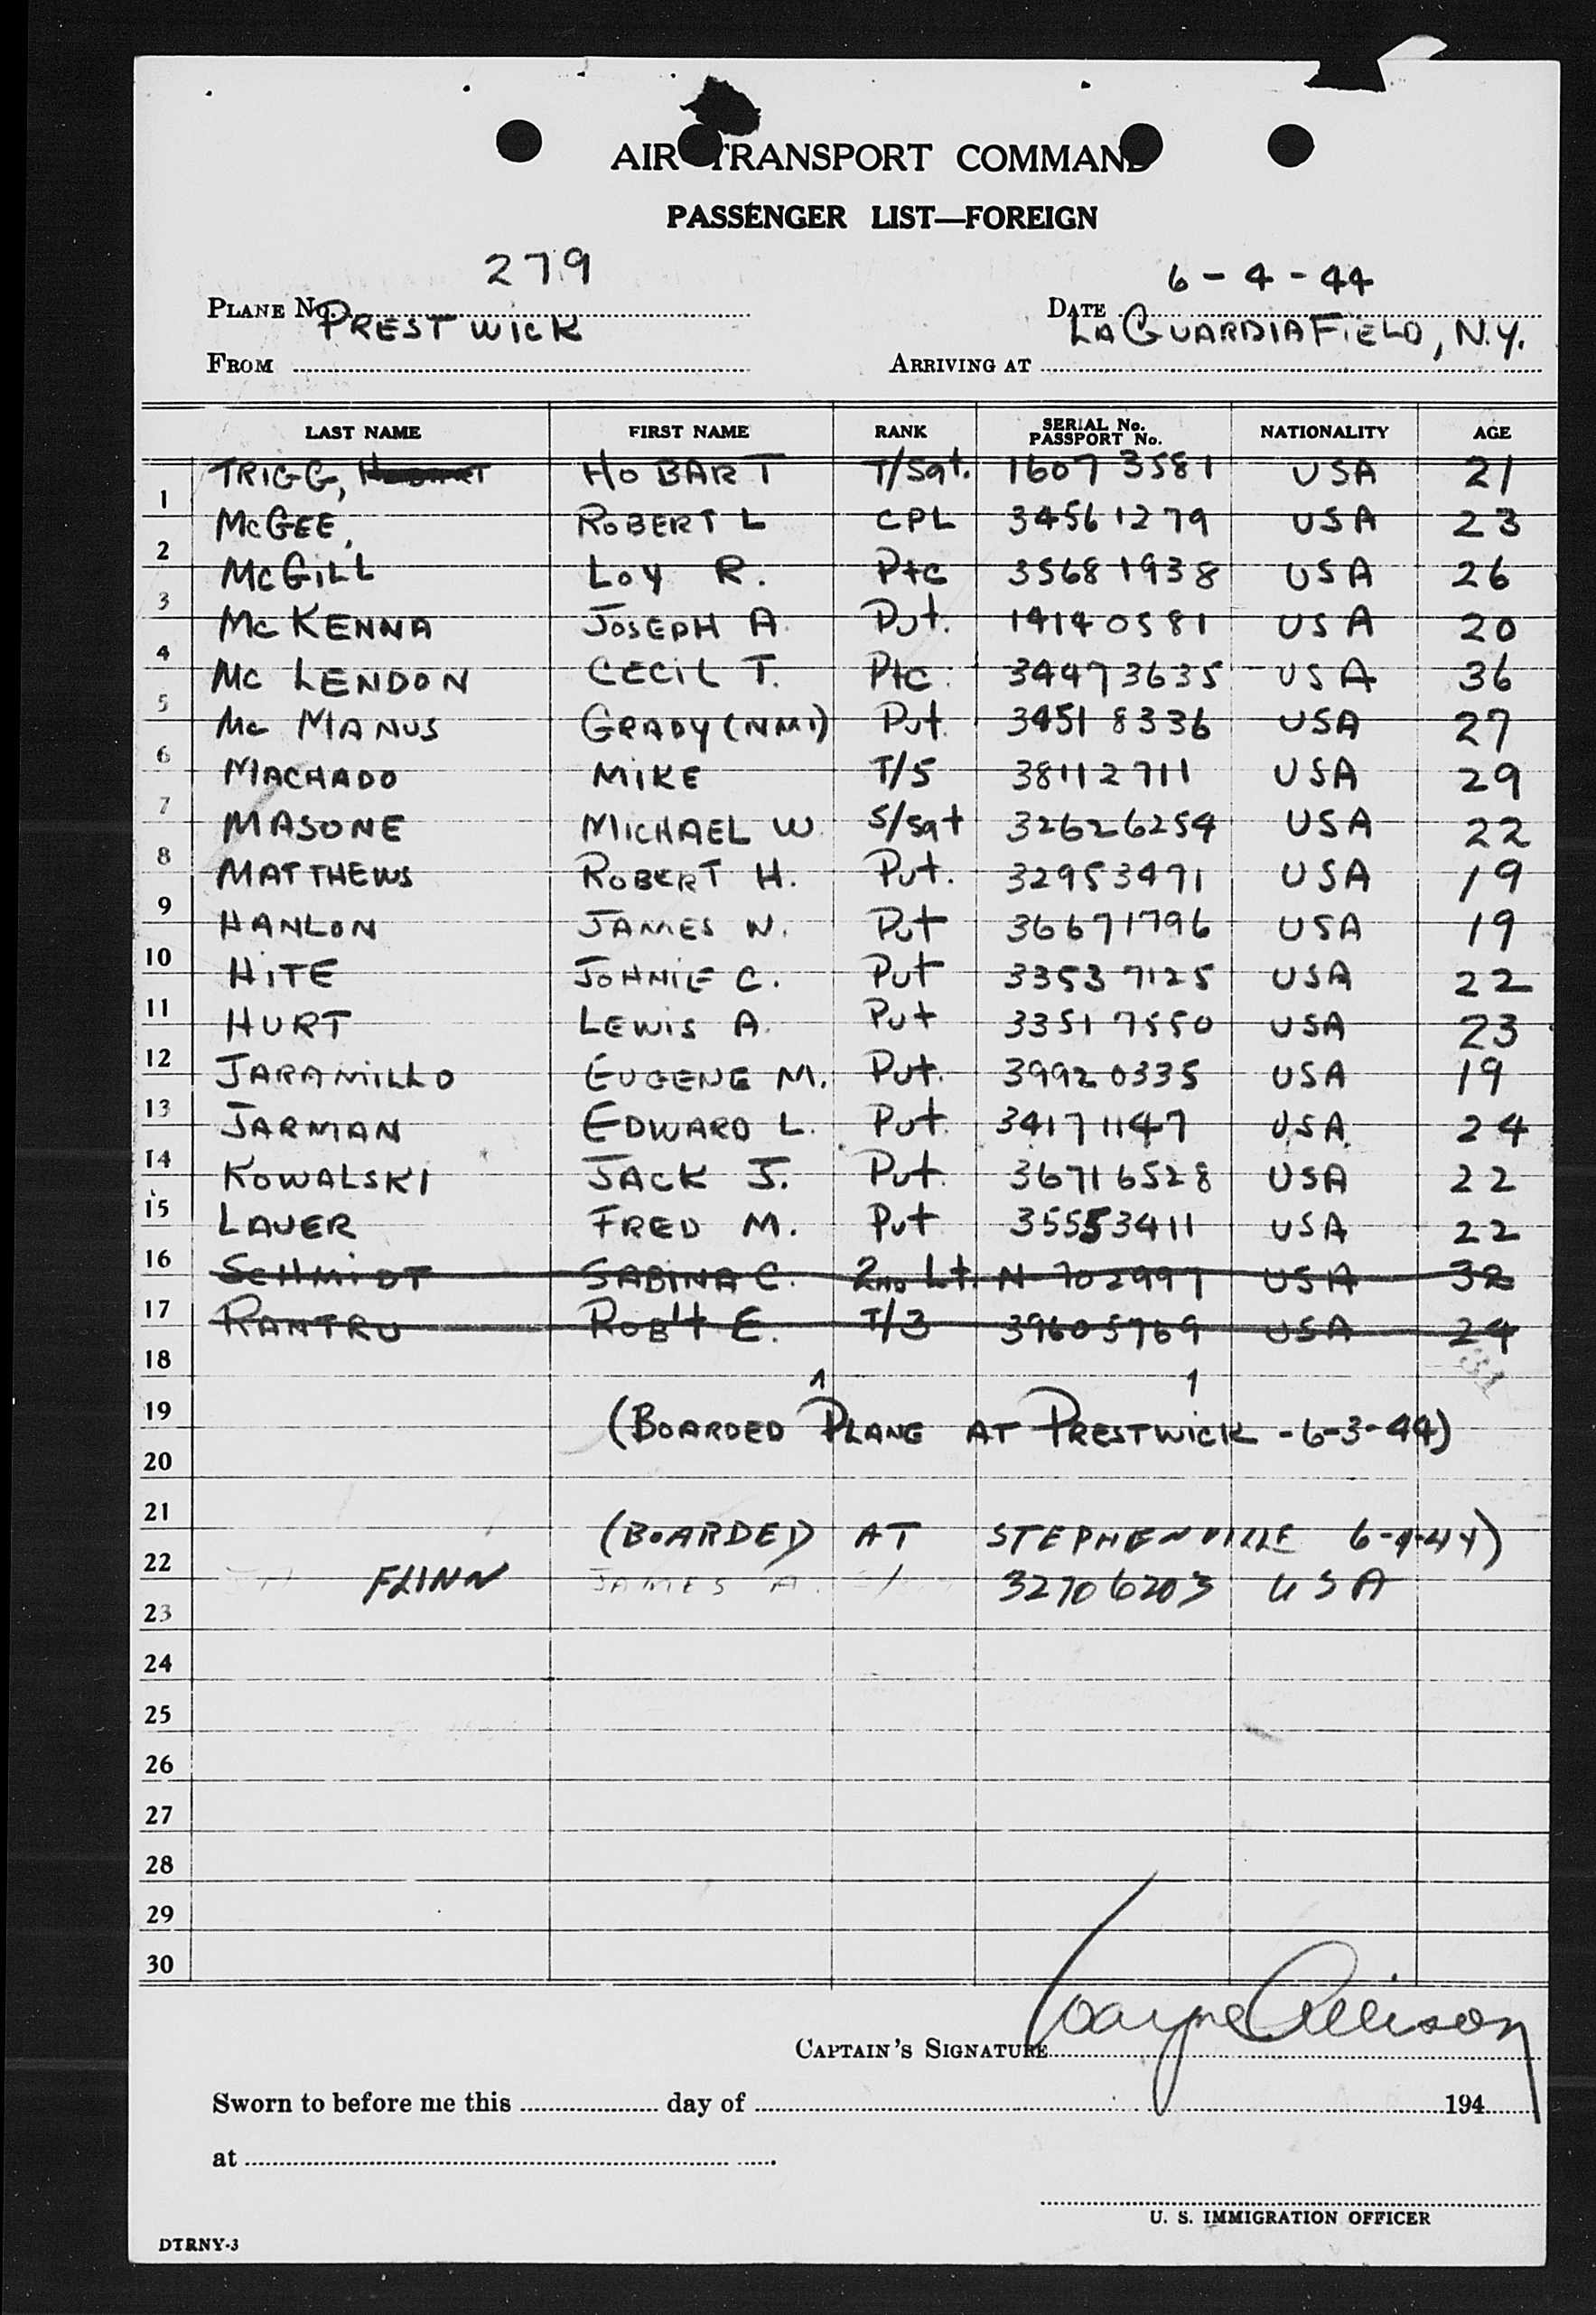 AIR TRANSPORT COMMAND
PASSENGER LIST—FOREIGN
PLANE No. 279 DATE 6-4-44
FROM PRESTWICK ARRIVING AT LA GUARDIA FIELD, N.Y.
LAST NAME FIRST NAME RANK SERIAL No. PASSPORT No. NATIONALITY AGE
1 TRIGG, HOBART HOBART T/Sgt. 16073581 USA 21
2 McGEE, ROBERT L CPL 34561279 USA 23
3 McGILL LOY R. Pfc 35681938 USA 26
4 McKENNA JOSEPH A. Pvt. 14140581 USA 20
5 Mc LENDON CECIL T. Pfc. 34473635 USA 36
6 Mc MANUS GRADY (NMI) Pvt. 34518336 USA 27
7 MACHADO MIKE T/5 38112711 USA 29
8 MASONE MICHAEL W. S/Sgt 32626254 USA 22
9 MATTHEWS ROBERT H. Pvt. 32953471 USA 19
10 HANLON JAMES W. Pvt 36671796 USA 19
11 HITE JOHNIE C. Pvt 33537125 USA 22
12 HURT LEWIS A. Pvt 33517550 USA 23
13 JARAMILLO EUGENE M. Pvt. 39920335 USA 19
14 JARMAN EDWARD L. Pvt. 34171147 USA 24
15 KOWALSKI JACK J. Pvt. 36716528 USA 22
16 LAUER FRED M. Pvt 35553411 USA 22
17 SCHMIDT SABINA C. 2ND Lt. N-702997 USA 32
18 RANTRU ROB'T E. T/3 39605769 USA 24
19
20 (BOARDED PLANE AT PRESTWICK - 6-3-44)
21
22 (BOARDED AT STEPHENVILLE 6-4-44)
23 FLINN JAMES A. 32706203 USA
24
25
26
27
28
29
30
CAPTAIN'S SIGNATURE Wayne Allison
Sworn to before me this day of 194
at
U. S. IMMIGRATION OFFICER
DTRNY-3